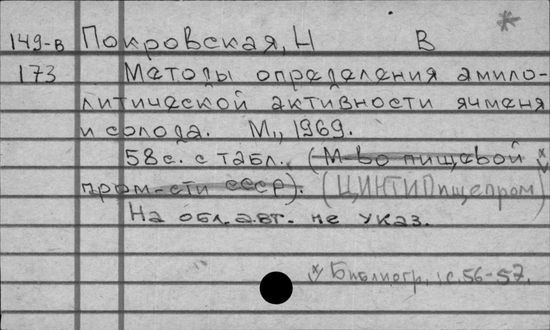 *
149-в Покровская, Н В
173 Методы определения амило-
литической активности ячменя
и солода. М., 1969.
58 с. с табл. (М-во пищевой
пром-сти СССР). (ЦИНТИПищепром)
На обл. авт. не указ.
* Библиогр., с. 56-57.